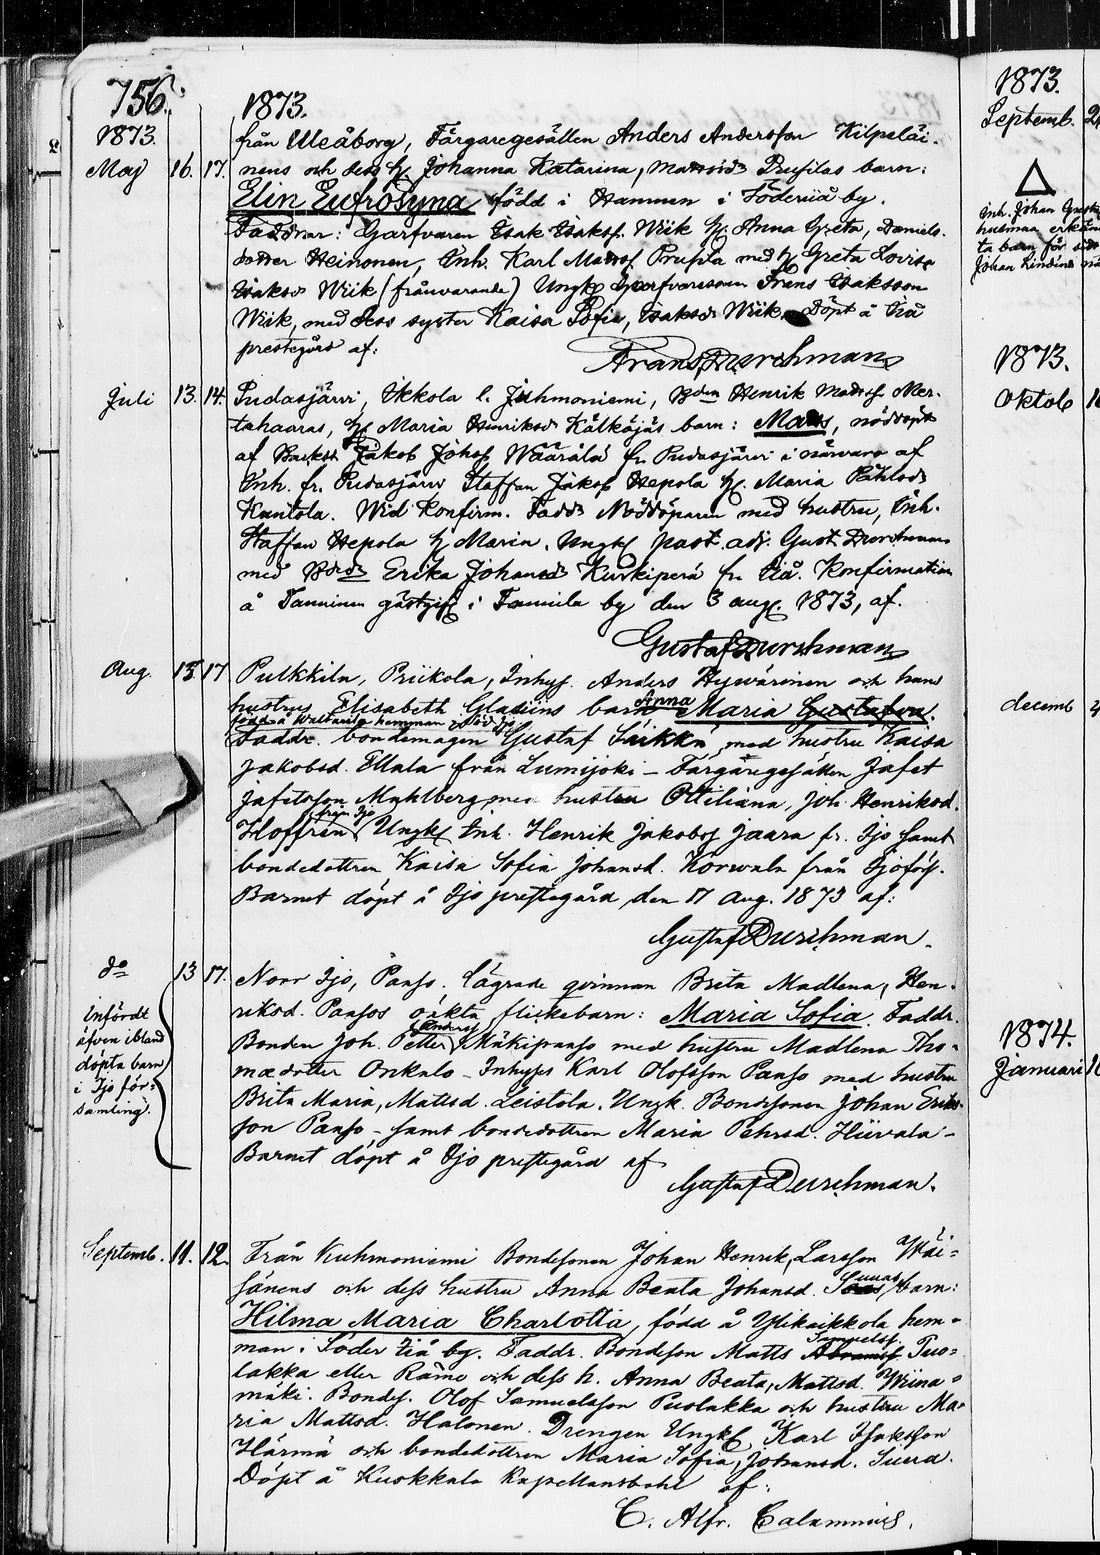 756.
1873.
1873.
från Uleåborg, Färgaregesällen Anders Andersson Kilpeläi-
May 16. 17. nens och dess h. Johanna Katarina, Mattsd. Prupilas barn:
Elin Eufrosyna född i Hamnen i Söderiiå by.
Faddrar: Garfvaren Isak Isaksf. Wiik h. Anna Greta, Daniels-
dotter Heinonen, Inh. Karl Mattsf Prupila med h Greta Lovisa
Isaksd. Wiik (frånvarande) Ungk garfvaresonen Frans Isaksson
Wiik, med dess syster Kaisa Sofia, Isaksd. Wiik. Döpt å Iiå
prestegård af:
Frans Durchman
Juli 13. 14. Pudasjärvi, Ikkola l. Juhmoniemi, Bden Henrik Mattsf Mer-
tahaaras, h. Maria Henriksd. Kälkäjäs barn: Matts, nöddöpt
af Jakob Johsf Määrälä fr. Pudasjärvi i närvaro af
Inh. fr. Pudasjärvi Staffan Jakosf Hepola h. Maria Påhlsd.
Kantola. Wid Konfirm. Fadd. Nöddöparen med hustru, Inh.
Staffan Hepola h Maria. Ungk past. adj. Gust Durchman
med Bdrd. Erika Johansd. Kurkiperä fr. Iiå. Konfirmation
å Tanninen gästgif. i Tannila by den 3 aug. 1873, af.
Gustaf Durchman
Aug. 15 17 Pulkkila, Priikola, Inhys. Anders Hyvärinen och hans
hustrus Elisabeth Glasiins barn Anna Maria Gustafva.
född å hemman i Ijo
Faddr. bondemågen Gustaf Siikka med hustru Kaisa
Jakobsd. Ellala från Lumijoki – Färgaregesällen Jafet
Jafetsson Myhlberg med hustru Ottiliana, Joh. Henriksd.
från Ijo
Hoffrén, Ungk Inh. Henrik Jakobsf Jaara fr. Ijo samt
bondedottren Kaisa Sofia Johansd. Korwala från Ijo förs.
Barnet döpt å Ijo prestegård den 17 Aug. 1873 af:
Gustaf Durchman.
do 13 17. Norr Ijo, Panso. Lägrade qvinnan Brita Madlena, Hen-
riksd. Pansos oäkta flickebarn: Maria Sofia. Faddr.
Andersf
Bonden Joh. Petter Mäkipanso med hustru Madlena Tho-
madotter Onkalo – Inhyses Karl Olofsson Panso med hustru
Brita Maria, Mattsd. Leistola. Ungk. Bondesonen Johan Eriks-
son Panso – samt bondedottren Maria Pehrsd. Hiivala –
Barnet döpt å Ijo prestegård af
Gustaf Durchman.
införde
äfven ibland
döpta barn
i Ijo för-
samling.
Septemb. 11. 12. Från Kuhmoniemi Bondesonen Johan Henrik, Larsson Wäi-
sänens och dess hustru Anna Beata Johansd. Suuas barn:
Hilma Maria Charlotta, född å Ylikaikkola hem-
Samuelsf.
man i Söder Iiå by. Faddr. Bondeson Matts Abramsf Puo-
lakka eller Räme och dess h. Anna Beata, Mattsd. Wiina-
mäki. Bondes. Olof Samuelsson Puolakka och hustru Ma-
ria Mattsd. Halonen. Drengen Ungk Karl Isaksson
Härmä och bondedottren Maria Sofia, Johansd. Suua.
Döpt å Kuokkala Kapellansbohl af:
C. Alfr. Calamnius.
1873.
Septemb. 2
Inh. Johan Gust
hustrua erkän
ta barn för sitt
Johan
1873.
Oktob 1
decemb 4
1874.
Januari 1